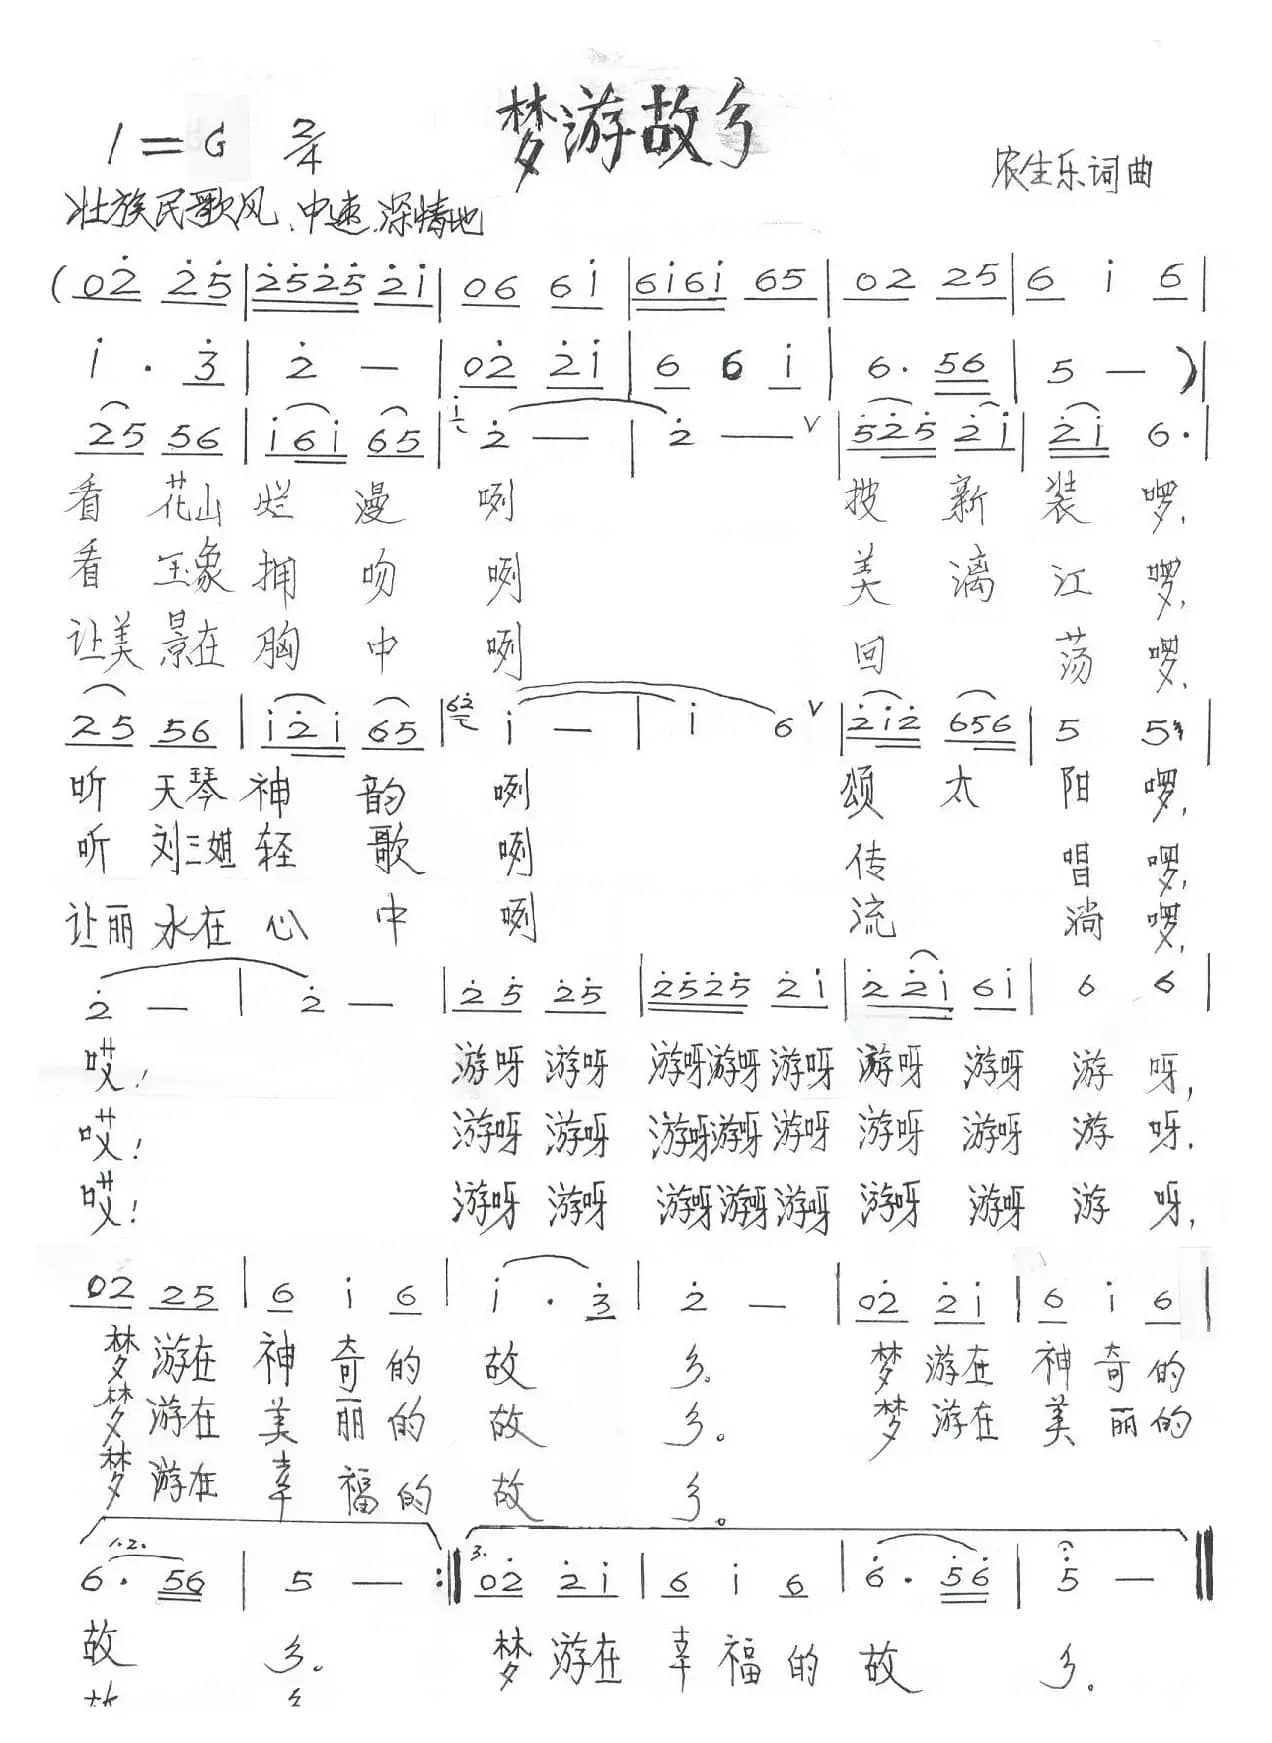 梦游故乡
1=G 2/4
农生乐词曲
壮族民歌风、中速、深情地
(02̇ 2̇5̇ | 2̇5̇2̇5̇ 2̇i | 06 6i | 6i6i 65 | 02 25 | 6 i 6 |
i · 3̇ | 2̇ — | 02̇ 2̇i | 6 6 i | 6· 56 | 5 — ) |
25 56 | i6i 65 | 2̇ — | 2̇ — ∨ | 5̇2̇5̇ 2̇i | 2̇i 6· |
看 花山 烂 漫 咧 披 新 装 啰,
看 玉象 拥 吻 咧 美 漓 江 啰,
让美 景在 胸 中 咧 回 荡 啰,
25 56 | i2̇i 65 | i — | i 6 ∨ | 2̇i2̇ 656 | 5 5 |
听 天琴 神 韵 咧 颂 太 阳 啰,
听 刘三姐 轻 歌 咧 传 唱 啰,
让丽 水在 心 中 咧 流 淌 啰,
2̇ — | 2̇ — | 2̇5̇ 2̇5̇ | 2̇5̇2̇5̇ 2̇i | 2̇2̇i 6i | 6 6 |
哎! 游呀 游呀 游呀游呀 游呀 游呀 游呀 游 呀,
哎! 游呀 游呀 游呀游呀 游呀 游呀 游呀 游 呀.
哎! 游呀 游呀 游呀游呀 游呀 游呀 游呀 游 呀,
02 25 | 6 i 6 | i · 3̇ | 2̇ — | 02̇ 2̇i | 6 i 6 |
梦 游在 神 奇的 故 乡。 梦 游在 神 奇 的
梦 游在 美 丽的 故 乡。 梦 游在 美 丽的
梦 游在 幸 福的 故 乡。
1.2. 6· 56 | 5 — :‖ 3. 02̇ 2̇i | 6 i 6 | 6̇· 5̇6̇ | 5̇ — ‖
故 乡。 梦 游在 幸 福 的 故 乡。